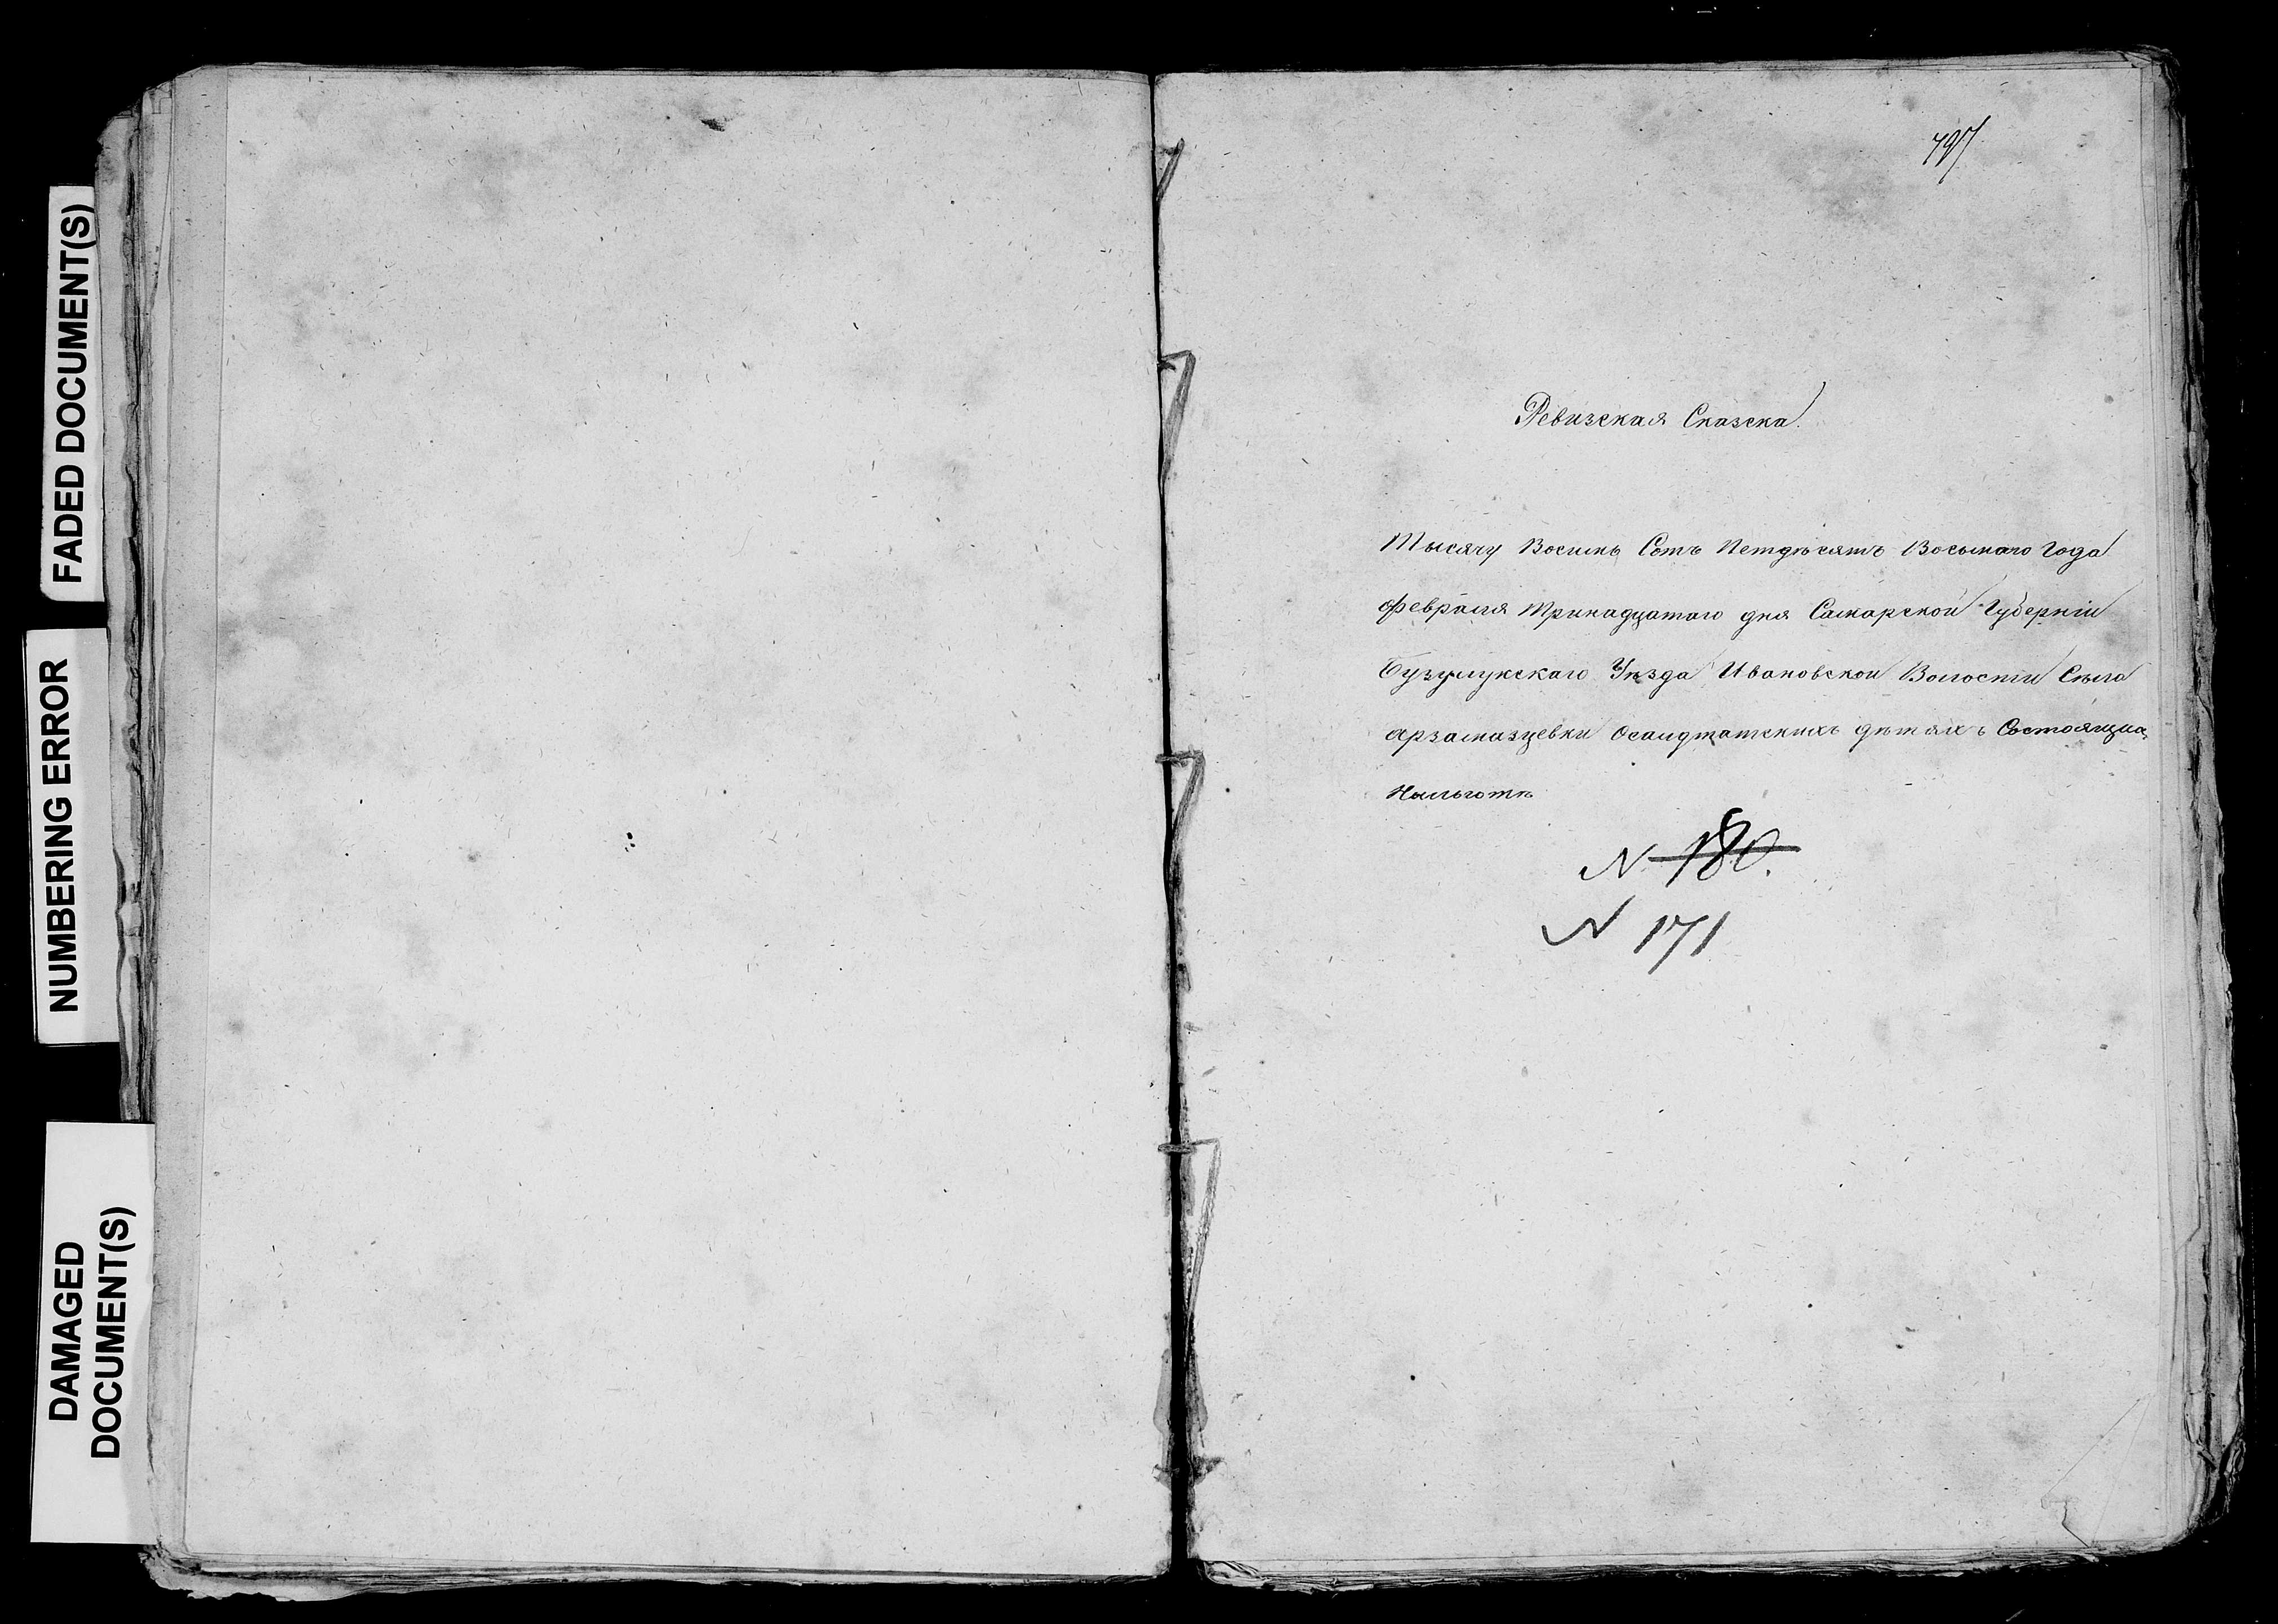 FADED DOCUMENT(S)
NUMBERING ERROR
DAMAGED
DOCUMENT(S)
797
Ревизская Сказска
Тысячу Восимь Сотъ Петдѣсятъ Восьмаго Года
февраля Тринадцатаго дня Самарской Губерніи
Бузулукскаго Уѣзда Ивановской Волости Сѣла
арзамазцевки Осалдатскихъ дѣтяхъ Состоящиа
Нальготѣ
N 180.
N 171